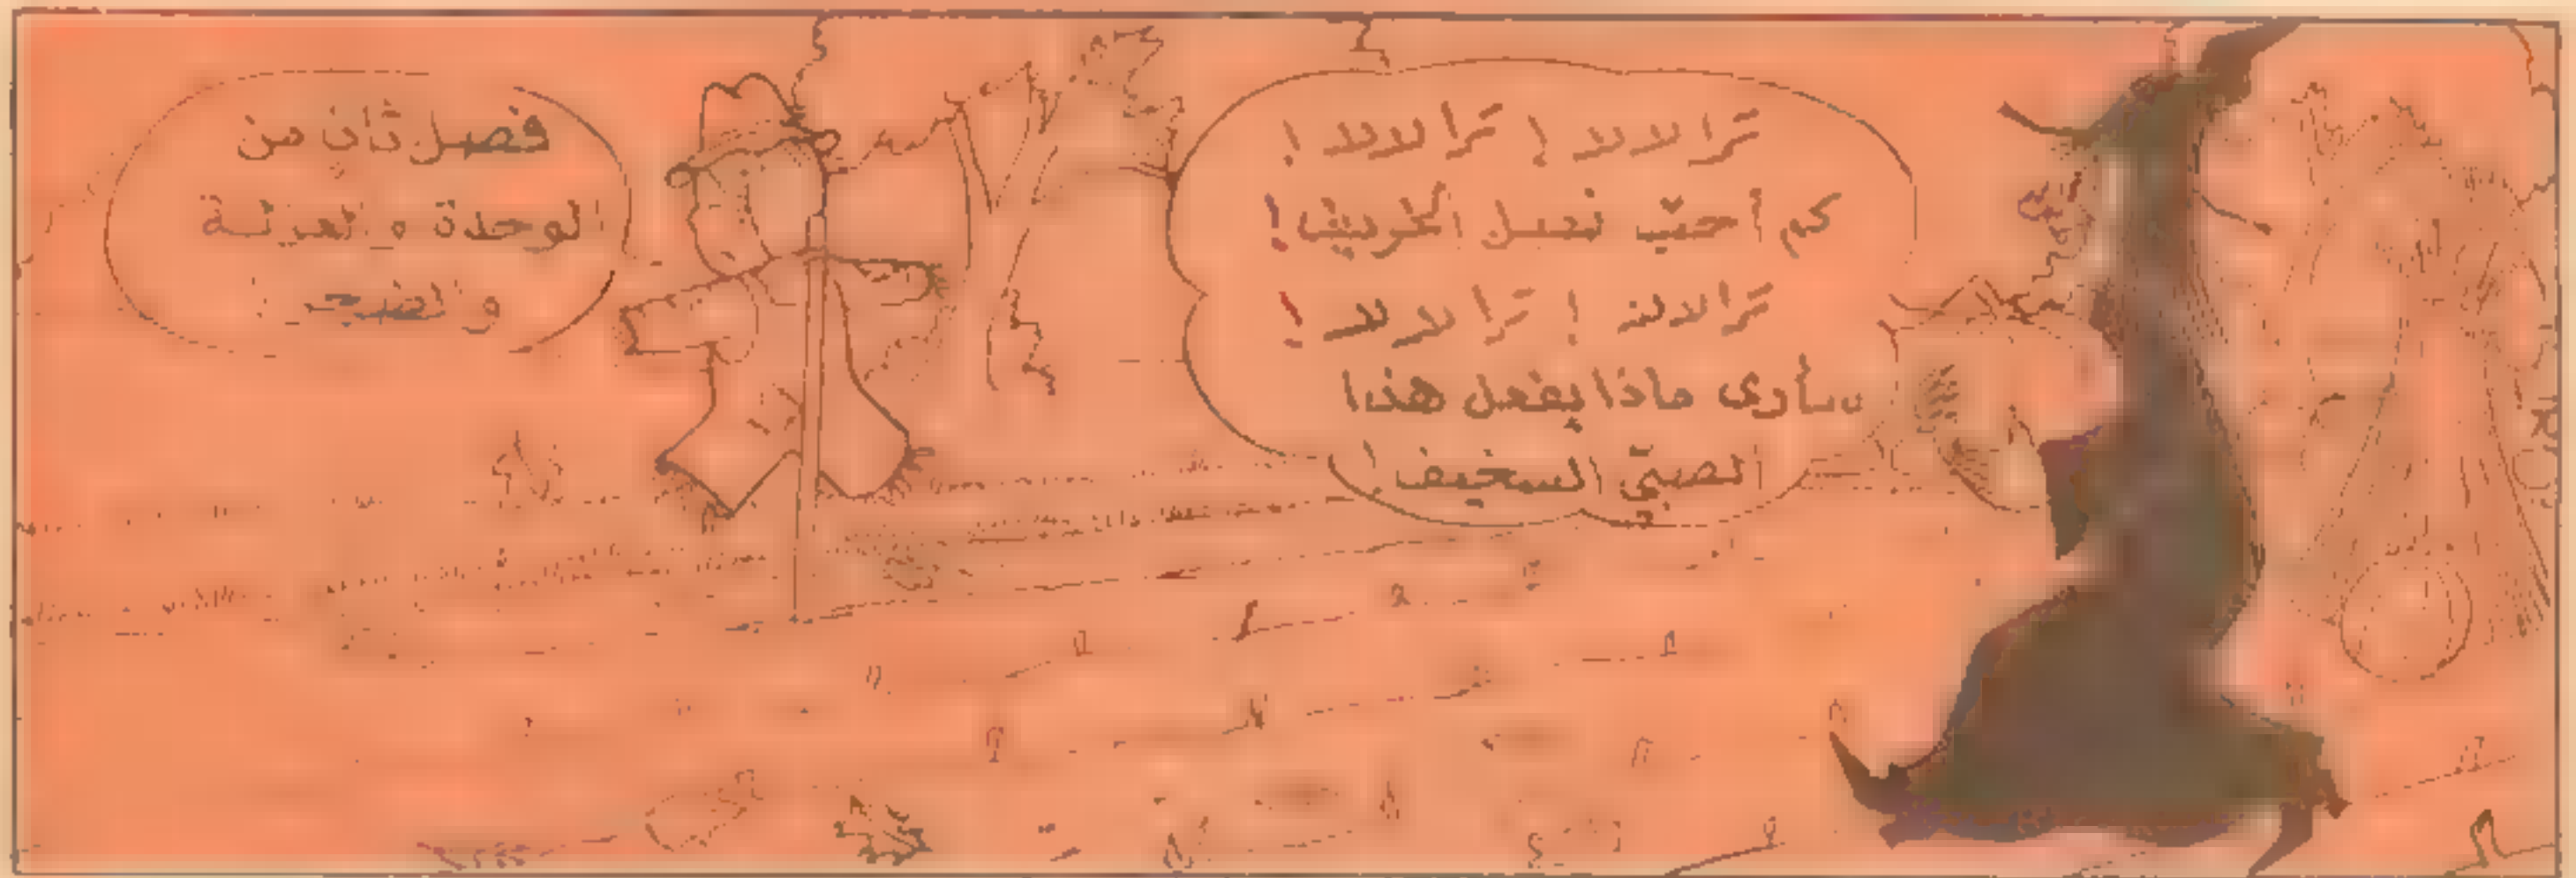 ترا لا لا لا ! ترا لا لا لا !
كم أحبّ فصل الخريف !
ترا لا لا لا ! ترا لا لا لا !
سأرى ماذا يفعل هذا
الصبيّ السخيف !
فصل ثانٍ من
الوحدة والعزلة
والضجر !